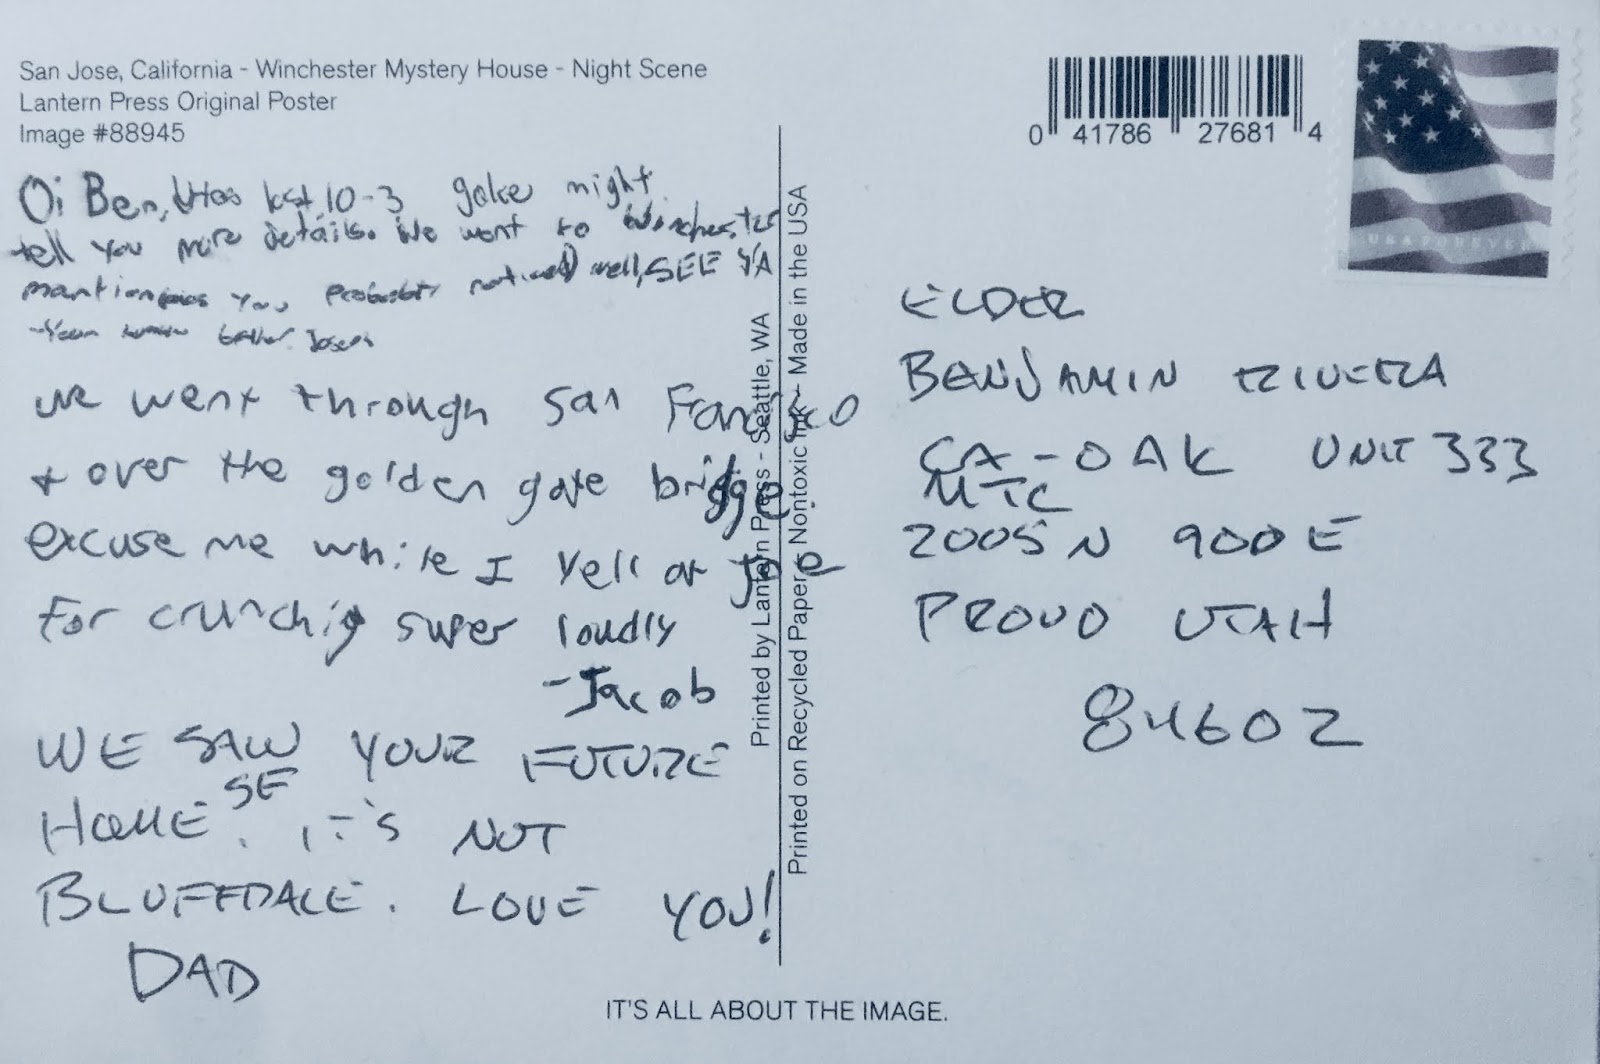 San Jose, California - Winchester Mystery House - Night Scene
Lantern Press Original Poster
Image #88945
0 41786 27681 4
USA FOREVER
Oi Ben, lost 10-3 might
tell you more details. We went to Winchester
you Probably noticed well, SEE YA
Joseph
we went through San
& over the golden gate bridge.
excuse me while I yell at Joe
for super loudly
-Jacob
WE SAW YOUR FUTURE
HOUSE
SE
. IT'S NOT
BLUFFDALE. LOVE YOU!
DAD
Printed by Lantern Press - Seattle, WA
Printed on Recycled Paper, Nontoxic Ink - Made in the USA
ELDER
BENJAMIN RIVERA
CA-OAK UNIT 333
MTC
2005 N 900 E
PROVO UTAH
84602
IT'S ALL ABOUT THE IMAGE.